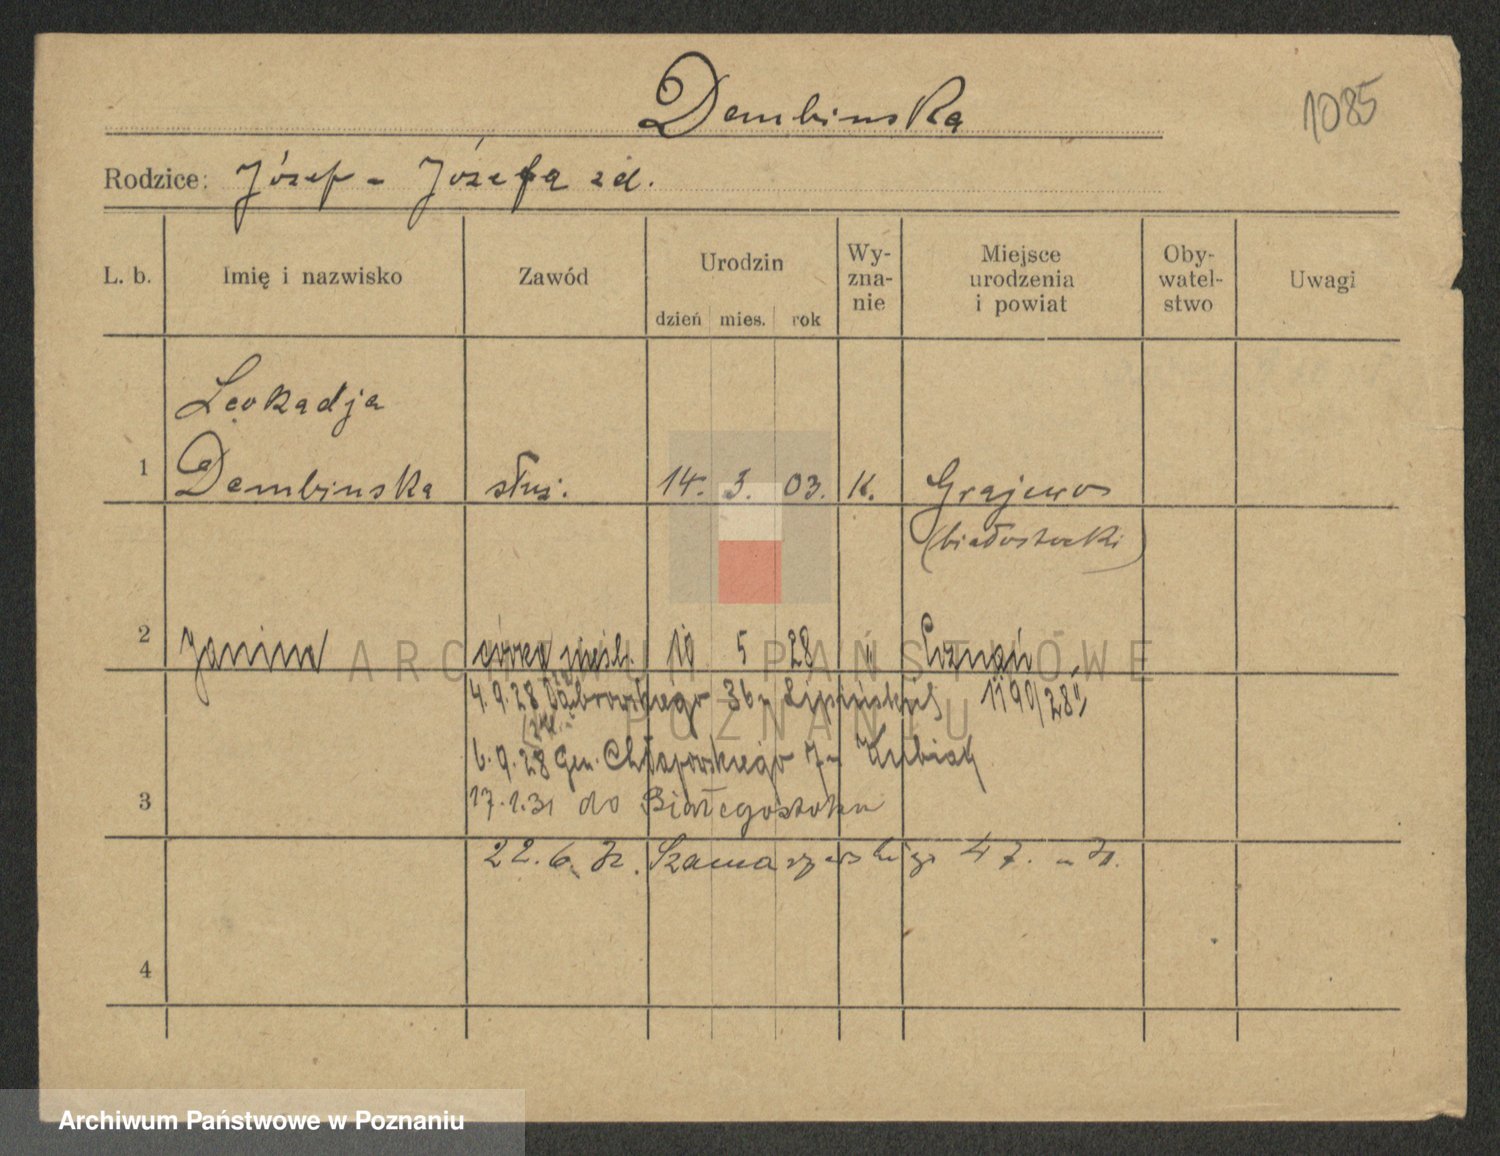 Dembinska
1085
Rodzice: Józef - Józefa zd.
L. b. Imię i nazwisko Zawód Urodzin dzień mies. rok Wyznanie Miejsce urodzenia i powiat Obywatelstwo Uwagi
Leokadja
1 Dembinska służ. 14. 3. 03. K. Grajewo
(białostocki)
2 Janina córka nieśl. 10 5 28 " Poznań
4.9.28 Dąbrowskiego 36 1190/28
6.9.28 Gen. Chłapowskiego 7 - Kubiak
3 17.1.31 do Białegostoku
22.6. Szamarzewskiego 47.
4
ARCHIWUM PAŃSTWOWE
POZNANIU
Archiwum Państwowe w Poznaniu